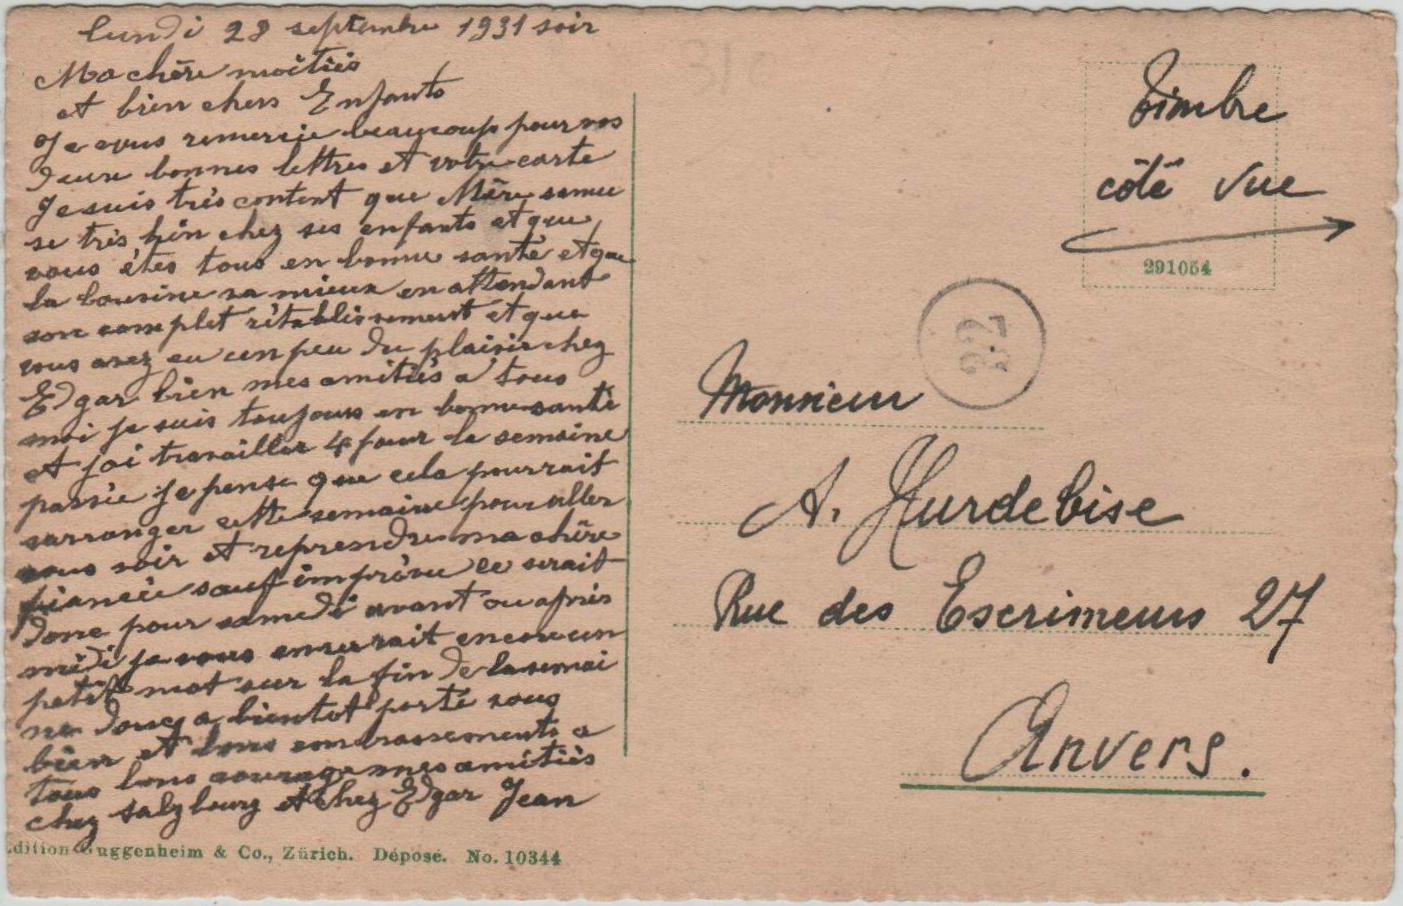 lundi 28 septembre 1931 soir
Ma chère moitiés
et bien chers Enfants
Je vous remercie beaucoup pour vos
deux bonnes lettres et votre carte
Je suis très content que Mère samu
se très bien chez ses enfants et que
vous étes tous en bonne santé et que
la cousine va mieux en attendant
son complet rétablissement et que
vous avez eu un peu du plaisir chez
Edgar bien mes amitiés a tous
moi je suis toujours en bonne santé
et j'ai travailler 4 jour la semaine
passée je pense que cela pourrait
sarranger cette semaine pour aller
vous voir et reprendre ma chère
fiancée sauf imprévu ce serait
donc pour samedi avant ou après
midi je vous enverrait encore un
petit mot sur la fin de la semai
ne donc a bientot porté vous
bien et bons embrassements a
tous bons courage mes amitiés
chez Salzbourg et chez Edgar Jean
Edition Guggenheim & Co., Zürich. Déposé. No. 10344
Timbre
côté vue
291054
Monsieur
A. Hurdebise
Rue des Escrimeurs 27
Anvers.